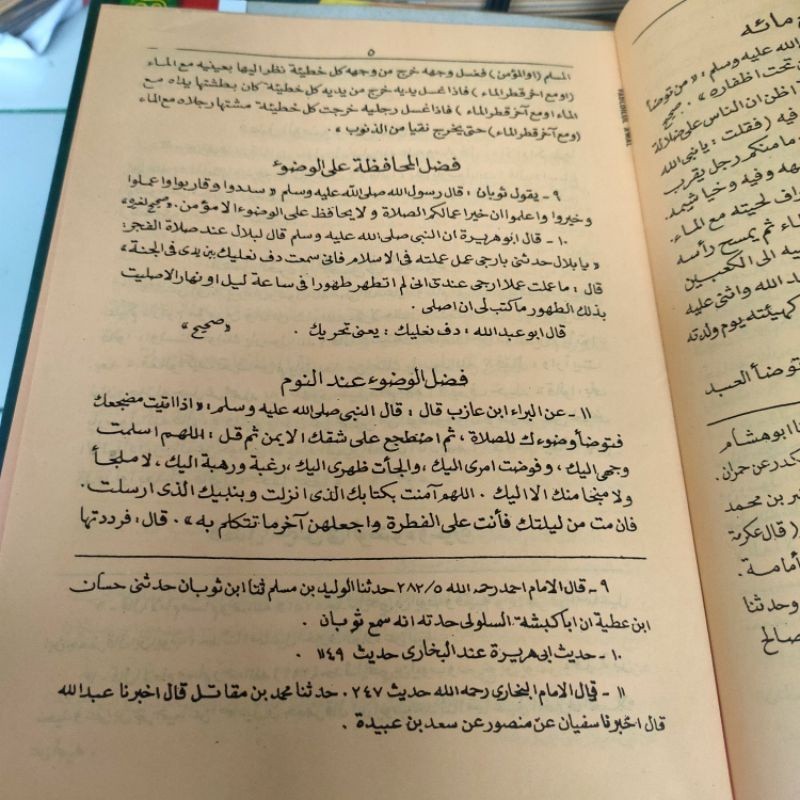 ٥
المسلم (او المؤمن) فغسل وجهه خرج من وجهه كل خطيئة نظر اليها بعينيه مع الماء
(او مع اخر قطر الماء) فاذا غسل يديه خرج من يديه كل خطيئة كان بطشتها يداه مع
الماء او مع آخر قطر الماء) فاذا غسل رجليه خرجت كل خطيئة مشتها رجلاه مع الماء
(او مع آخر قطر الماء) حتى يخرج نقيا من الذنوب».
فضل المحافظة على الوضوء
٩ - يقول ثوبان: قال رسول الله صلى الله عليه وسلم «سددوا وقاربوا واعملوا
وخيروا واعلموا ان خير اعمالكم الصلاة ولا يحافظ على الوضوء الا مؤمن». صحيح لغيره
١٠ - قال ابو هريرة ان النبي صلى الله عليه وسلم قال لبلال عند صلاة الفجر:
«يا بلال حدثنى بارجى عمل عملته فى الاسلام فانى سمعت دف نعليك بين يدى فى الجنة»
قال: ما عملت عملا ارجى عندى انى لم اتطهر طهورا فى ساعة ليل او نهار الا صليت
بذلك الطهور ما كتب لى ان اصلى.
قال ابو عبد الله: دف نعليك: يعنى تحريك. «صحيح»
فضل الوضوء عند النوم
١١ - عن البراء ابن عازب قال: قال النبى صلى الله عليه وسلم: «اذا اتيت مضجعك
فتوضأ وضوءك للصلاة، ثم اضطجع على شقك الايمن ثم قل: اللهم اسلمت
وجهى اليك، وفوضت امرى اليك، والجأت ظهرى اليك، رغبة ورهبة اليك، لا ملجأ
ولا منجا منك الا اليك. اللهم آمنت بكتابك الذى انزلت وبنبيك الذى ارسلت.
فان مت من ليلتك فأنت على الفطرة واجعلهن آخر ما تتكلم به». قال: فرددتها
٩ - قال الامام احمد رحمه الله ٢٨٢/٥ حدثنا الوليد بن مسلم ثنا ابن ثوبان حدثنى حسان
ابن عطية ان ابا كبشة السلولى حدثه انه سمع ثوبان.
١٠ - حديث ابى هريرة عند البخارى حديث ١١٤٩.
١١ - قال الامام البخارى رحمه الله حديث ٢٤٧. حدثنا محمد بن مقاتل قال اخبرنا عبد الله
قال اخبرنا سفيان عن منصور عن سعد بن عبيدة.
الله عليه وسلم: «من توضأ
من تحت اظفاره». صحيح
اظن ان الناس على ضلالة
فيه (فقلت: يا نبى الله
ما منكم رجل يقرب
وفيه وخياشيمه.
لحيته مع الماء.
ثم يمسح رأسه
الى الكعبين
الله واثنى عليه
كهيئته يوم ولدته
توضأ العبد
ابو هشام
عن حمران.
بن محمد
(قال عكرمة
أمامة.
وحدثنا
صالح